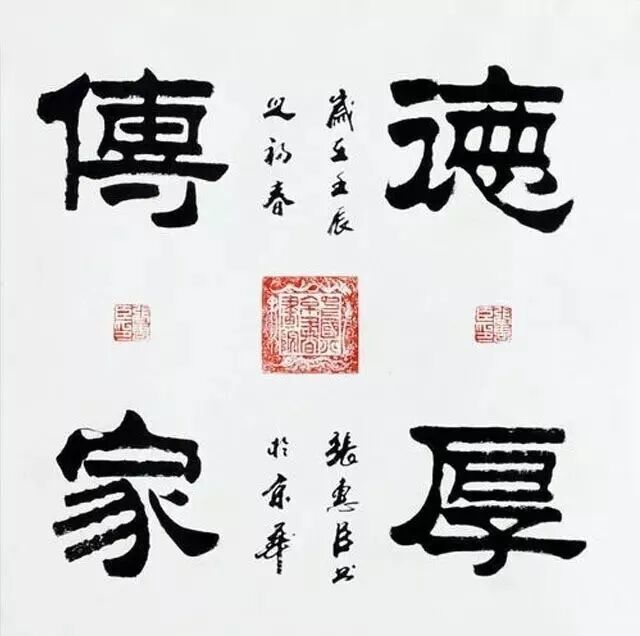 徳厚
傳家
歲在壬辰
之初春
張惠臣書
於京華